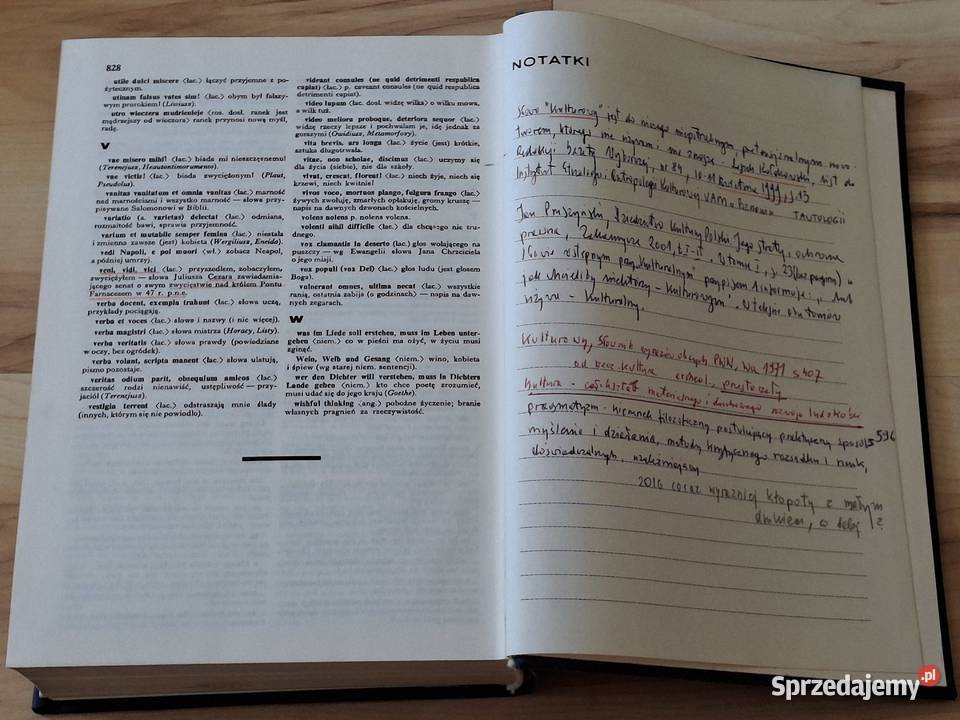 828
utile dulci miscere (łac.) łączyć przyjemne z po-
żytecznym.
utinam falsus vates sim! (łac.) obym był fałszy-
wym prorokiem! (Liwiusz).
utro wieczera mudrienieje (ros. dosł. ranek jest
mądrzejszy od wieczora) ranek przynosi nową myśl,
radę.
V
vae misero mihi! (łac.) biada mi nieszczęsnemu!
(Terencjusz, Heautontimorumenos).
vae victis! (łac.) biada zwyciężonym! (Plaut,
Pseudolus).
vanitas vanitatum et omnia vanitas (łac.) marność
nad marnościami i wszystko marność — słowa przy-
pisywane Salomonowi w Biblii.
variatio (a. varietas) delectat (łac.) odmiana,
rozmaitość bawi, sprawia przyjemność.
varium et mutabile semper femina (łac.) niestała
i zmienna zawsze (jest) kobieta (Wergiliusz, Eneida).
vedi Napoli, e poi muori (wł.) zobacz Neapol,
a później umrzyj.
veni, vidi, vici (łac.) przyszedłem, zobaczyłem,
zwyciężyłem — słowa Juliusza Cezara zawiadamia-
jącego senat o swym zwycięstwie nad królem Pontu
Farnacesem w 47 r. p.n.e.
verba docent, exempla trahunt (łac.) słowa uczą,
przykłady pociągają.
verba et voces (łac.) słowa i nazwy (i nic więcej).
verba magistri (łac.) słowa mistrza (Horacy, Listy).
verba veritatis (łac.) słowa prawdy (powiedziane
w oczy, bez ogródek).
verba volant, scripta manent (łac.) słowa ulatują,
pismo pozostaje.
veritas odium parit, obsequium amicos (łac.)
szczerość rodzi nienawiść, ustępliwość — przy-
jaciół (Terencjusz).
vestigia terrent (łac.) odstraszają mnie ślady
(innych, którym się nie powiodło).
videant consules (ne quid detrimenti respublica
capiat) (łac.) p. caveant consules (ne quid respublica
detrimenti capiat).
video lupum (łac. dosł. widzę wilka) o wilku mowa,
a wilk tuż.
video meliora proboque, deteriora sequor (łac.)
widzę rzeczy lepsze i pochwalam je, idę jednak za
gorszymi (Owidiusz, Metamorfozy).
vita brevis, ars longa (łac.) życie (jest) krótkie,
sztuka długotrwała.
vitae, non scholae, discimus (łac.) uczymy się
dla życia (siebie), nie dla szkoły.
vivat, crescat, floreat! (łac.) niech żyje, niech się
krzewi, niech kwitnie!
vivos voco, mortuos plango, fulgura frango (łac.)
żywych zwołuję, zmarłych opłakuję, gromy kruszę —
napis na dawnych dzwonach kościelnych.
volens nolens p. nolens volens.
volenti nihil difficile (łac.) dla chcącego nic tru-
dnego.
vox clamantis in deserto (łac.) głos wołającego na
puszczy — wg Ewangelii słowa Jana Chrzciciela
o jego misji.
vox populi (vox Dei) (łac.) głos ludu (jest głosem
Boga).
vulnerant omnes, ultima necat (łac.) wszystkie
ranią, ostatnia zabija (o godzinach) — napis na daw-
nych zegarach.
W
was im Liede soll erstehen, muss im Leben unter-
gehen (niem.) co w pieśni ma ożyć, w życiu musi
zginąć.
Wein, Weib und Gesang (niem.) wino, kobieta
i śpiew (wg starej niem. sentencji).
wer den Dichter will verstehen, muss in Dichters
Lande gehen (niem.) kto chce poetę zrozumieć,
musi udać się do jego kraju (Goethe).
wishful thinking (ang.) pobożne życzenie; branie
własnych pragnień za rzeczywistość.
NOTATKI
Słowo "Kulturową" jest do
tworem, którego nie używam i nie znoszę
Redakcji Gazety Wyborczej, nr 84, 10-11 kwietnia 1999, s. 13
Instytut Etnologii i Antropologii Kulturowej UAM w Poznaniu TAUTOLOGII
Jan Pruszyński, Dziedzictwo Kultury Polski Jego straty, ochrona
prawna, Zakamycze 2001, t. I-II, w tomie I, s. 23
jak chcieliby niektórzy - kulturowym".
używa - Kulturalny.
Kulturowy, Słownik wyrazów obcych PWN, Wa 1971 s 407
od rzecz. Kultura
Kultura - całokształt materialnego i duchowego rozwoju ludzkości
pragmatyzm - kierunek filozoficzny postulujący praktyczny sposób 596
myślenia i działania, metody krytycznego rozsądku i nauk
doświadczalnych
2016 coraz wyraźniej kłopoty z małym
drukiem, co dalej ?
Sprzedajemy.pl